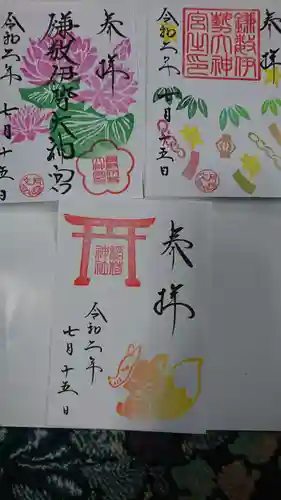 奉拝
鎌数伊勢大神宮
令和二年
七月十五日
奉拝
鎌數伊
勢大神
宮之印
令和二年
七月十五日
奉拝
稲荷
神社
令和二年
七月十五日